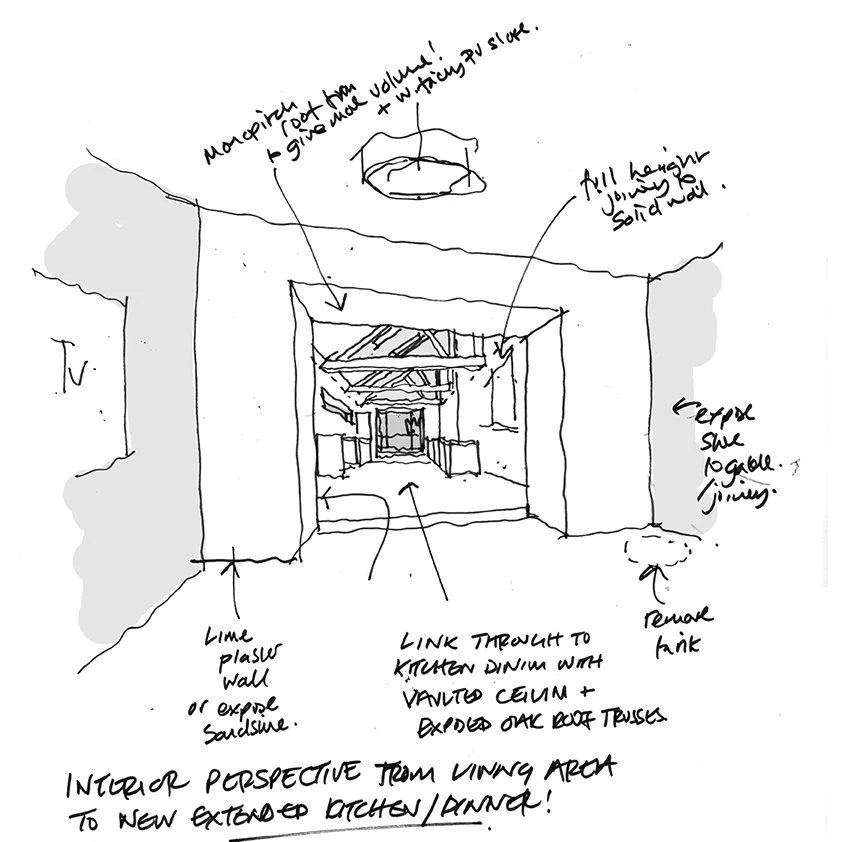 Monopitch
roof from
to give more volume!
+ w. facing PV slope.
full height
joinery to
solid wall.
TV
expose
stone
to gable.
/joinery.
Lime
plaster
wall
or expose
Sandstone.
LINK THROUGH TO
KITCHEN DINING WITH
VAULTED CEILING +
EXPOSED OAK ROOF TRUSSES.
remove
tank
INTERIOR PERSPECTIVE FROM LIVING AREA
TO NEW EXTENDED KITCHEN/DINNER!